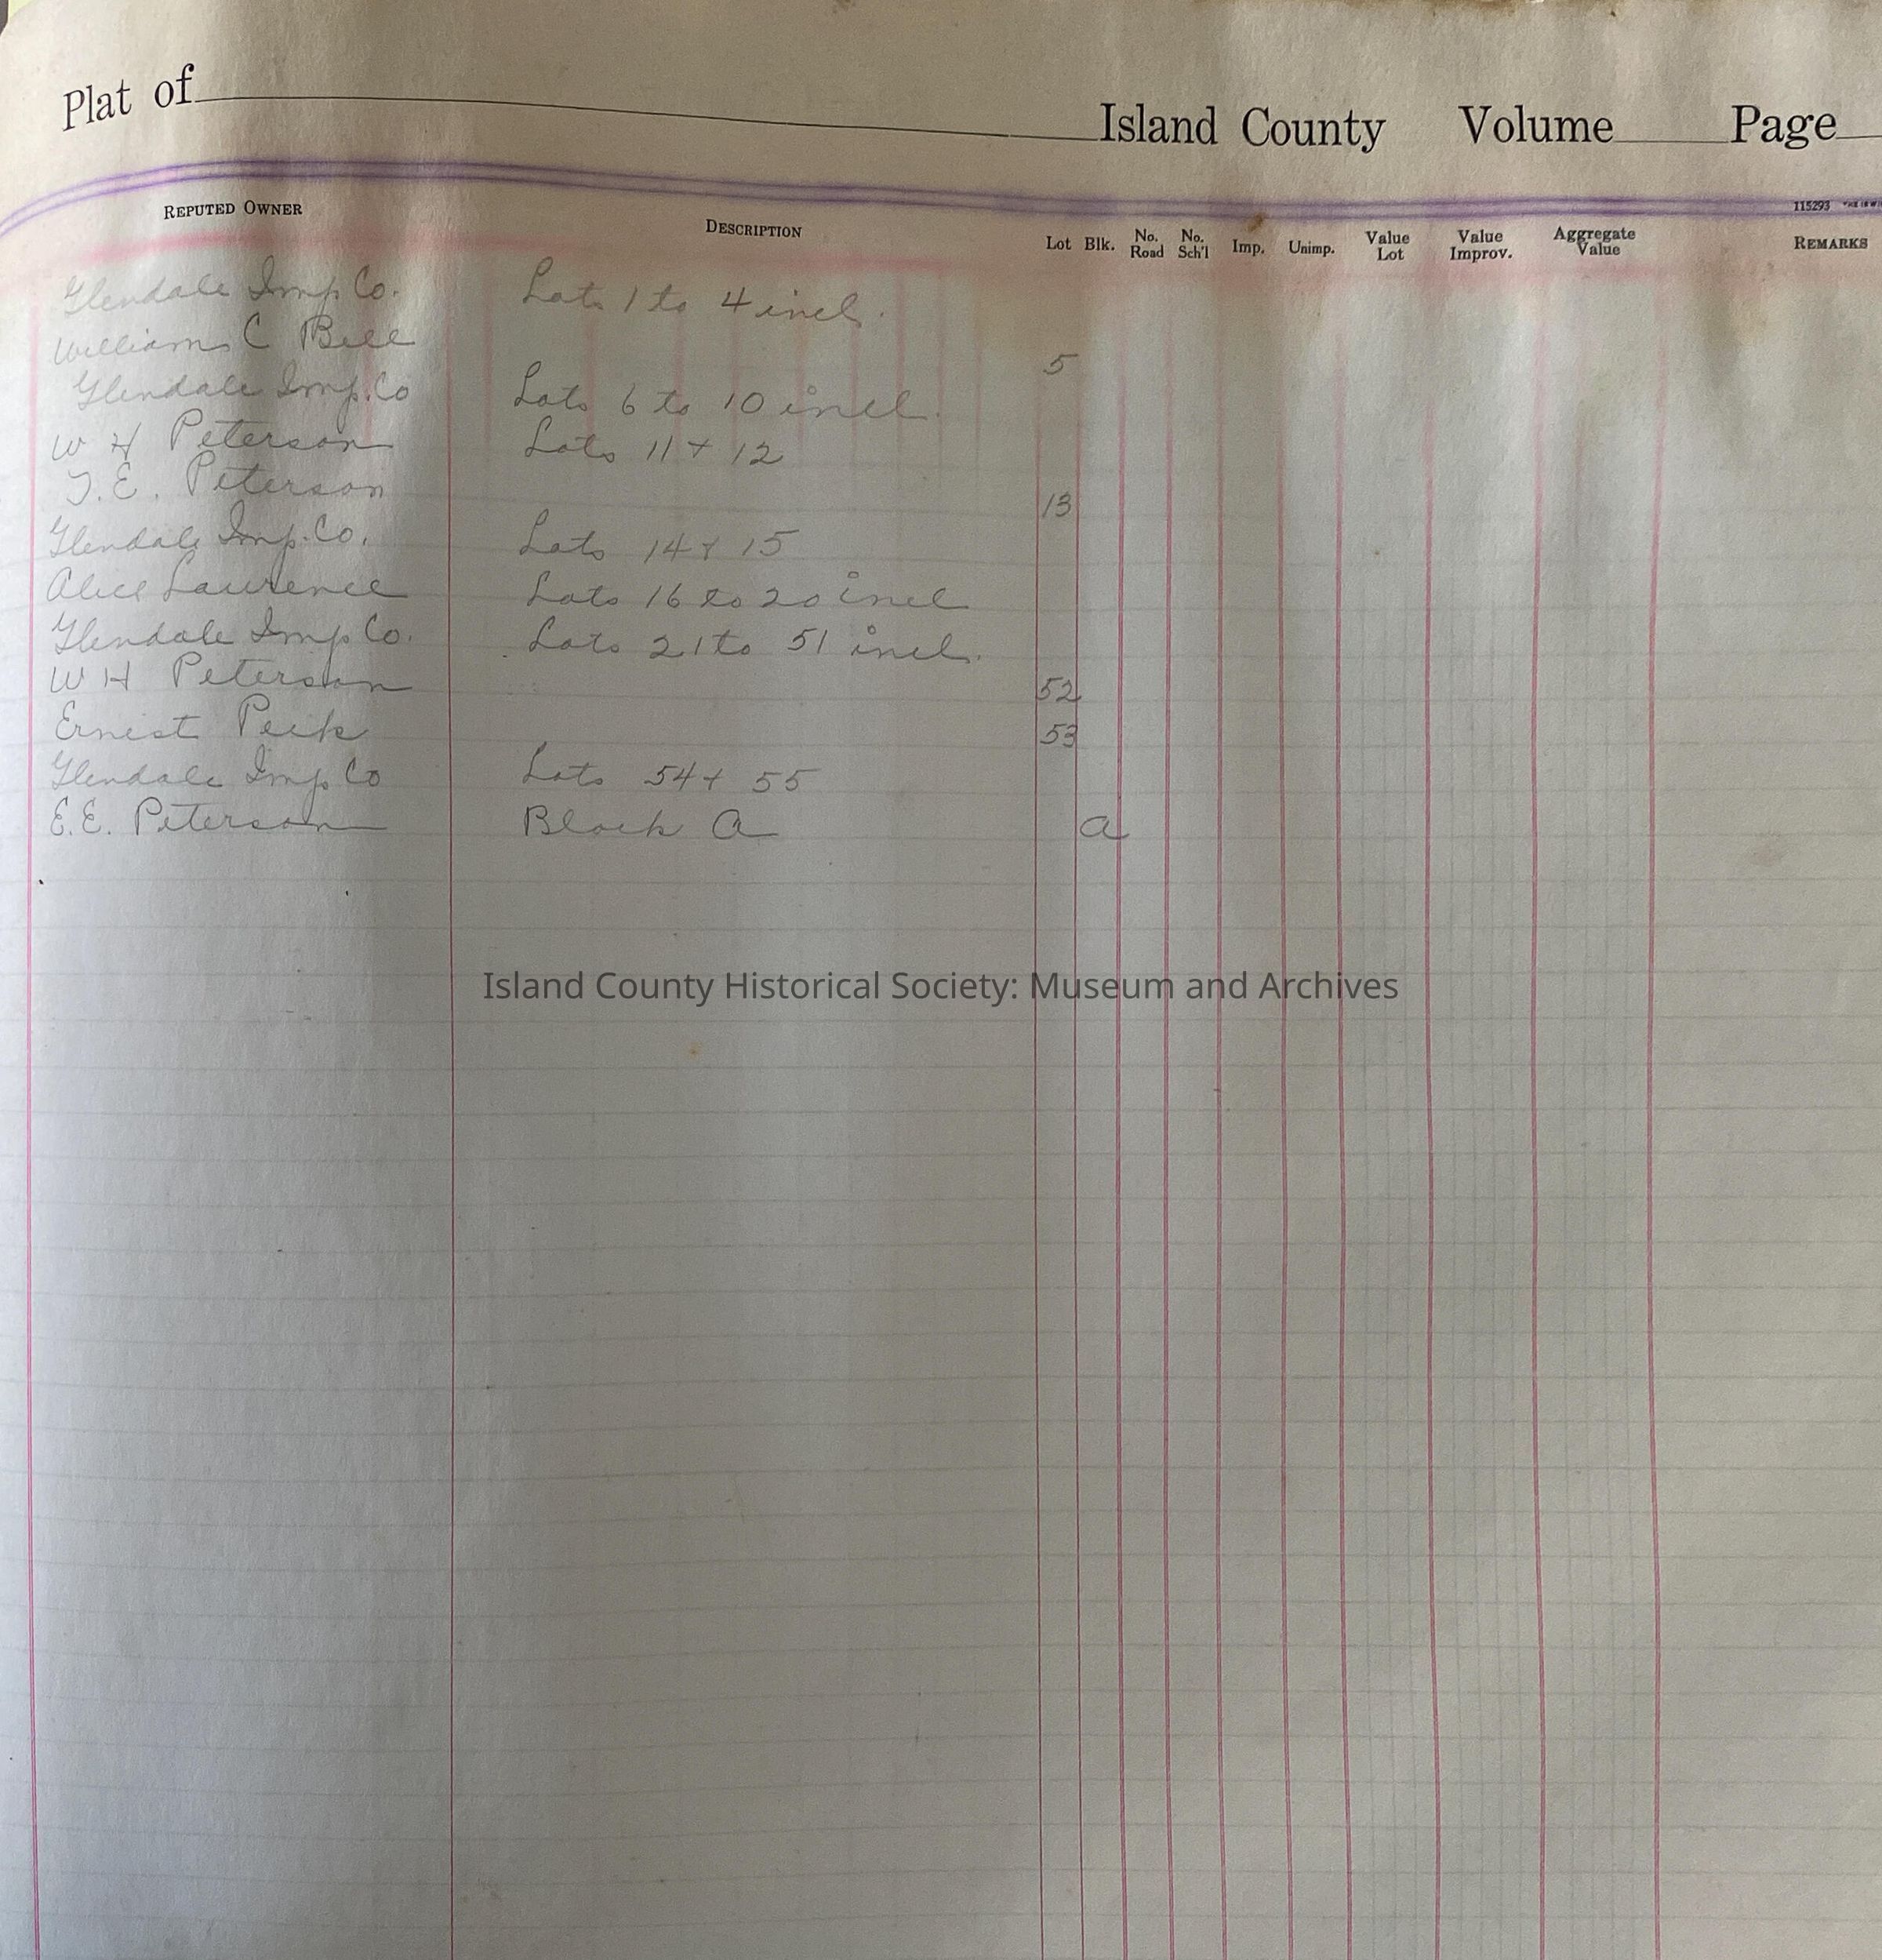 Plat of Island County Volume Page
115293
REPUTED OWNER DESCRIPTION Lot Blk. No. Road No. Sch'l Imp. Unimp. Value Lot Value Improv. Aggregate Value REMARKS
Glendale Imp Co. Lots 1 to 4 incl.
William C Bell 5
Glendale Imp. Co Lots 6 to 10 incl.
W H Peterson Lots 11 + 12
T. E. Peterson 13
Glendale Imp. Co. Lots 14 + 15
Alice Lawrence Lots 16 to 20 incl
Glendale Imp Co. Lots 21 to 51 incl.
W H Peterson 52
Ernest Peck 53
Glendale Imp Co Lots 54 + 55
E. E. Peterson Block A a
Island County Historical Society: Museum and Archives